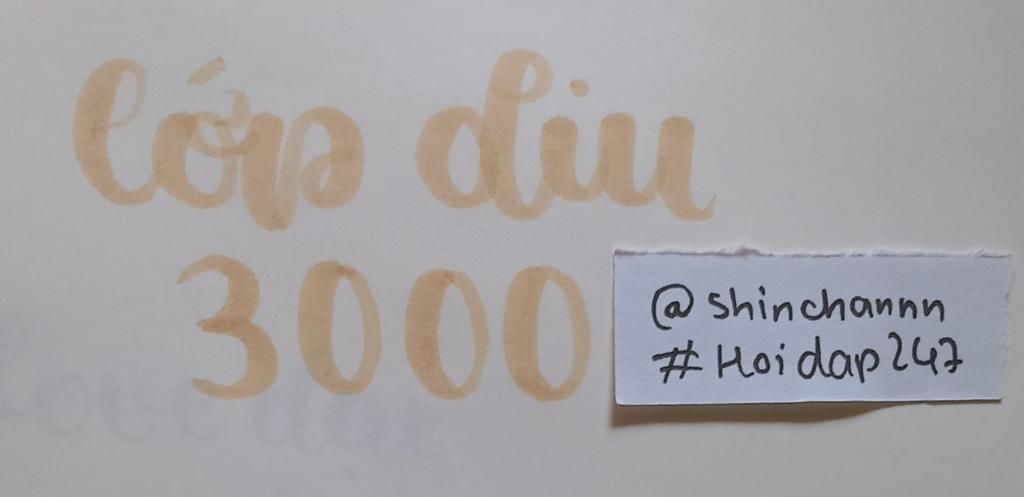 lớp diu
3000
@shinchannn
#Hoidap247